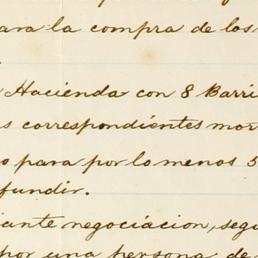 ara la compra de los
Hacienda con 8 Barri
s correspondientes mor
o para por lo menos 3
fundir.
iante negociacion, segu
por una persona de